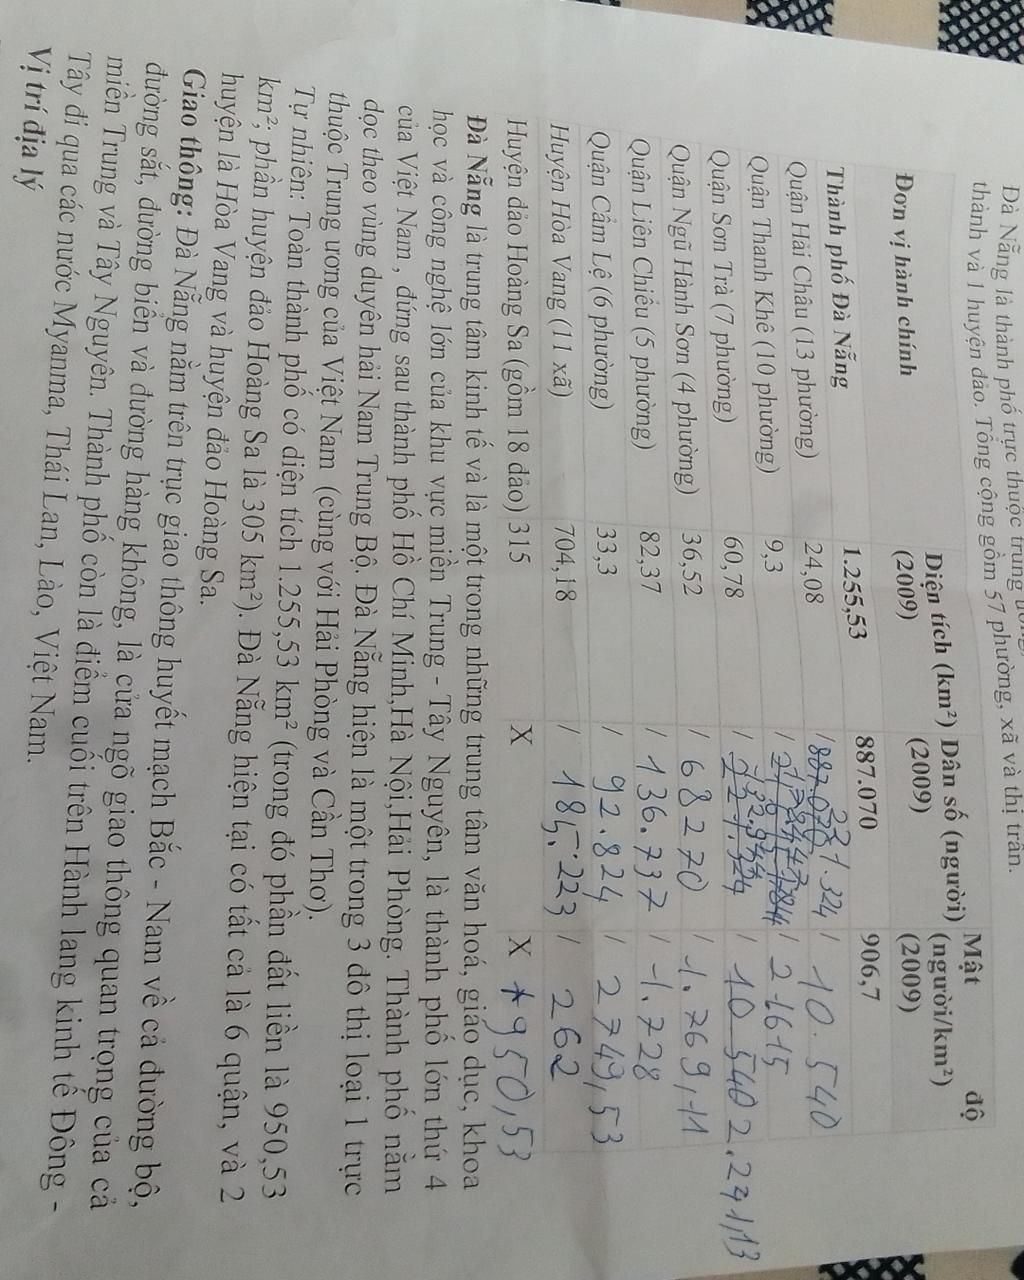 Đà Nẵng là thành phố trực thuộc trung ương,
thành và 1 huyện đảo. Tổng cộng gồm 57 phường, xã và thị trấn.
Đơn vị hành chính Diện tích (km²) (2009) Dân số (người) (2009) Mật độ (người/km²) (2009)
Thành phố Đà Nẵng 1.255,53 887.070 906,7
Quận Hải Châu (13 phường) 24,08 / 221.324 / 10.540
Quận Thanh Khê (10 phường) 9,3 / / 21615
Quận Sơn Trà (7 phường) 60,78 / 132.944 / 10 540 2.241,13
Quận Ngũ Hành Sơn (4 phường) 36,52 / 68270 / 1.769,11
Quận Liên Chiểu (5 phường) 82,37 / 136.737 / 1.728
Quận Cẩm Lệ (6 phường) 33,3 / 92.824 / 2749,53
Huyện Hòa Vang (11 xã) 704,18 / 185.223 / 262
Huyện đảo Hoàng Sa (gồm 18 đảo) 315 X X * 950,53
Đà Nẵng là trung tâm kinh tế và là một trong những trung tâm văn hoá, giáo dục, khoa
học và công nghệ lớn của khu vực miền Trung - Tây Nguyên, là thành phố lớn thứ 4
của Việt Nam , đứng sau thành phố Hồ Chí Minh,Hà Nội,Hải Phòng. Thành phố nằm
dọc theo vùng duyên hải Nam Trung Bộ. Đà Nẵng hiện là một trong 3 đô thị loại 1 trực
thuộc Trung ương của Việt Nam (cùng với Hải Phòng và Cần Thơ).
Tự nhiên: Toàn thành phố có diện tích 1.255,53 km² (trong đó phần đất liền là 950,53
km²; phần huyện đảo Hoàng Sa là 305 km²). Đà Nẵng hiện tại có tất cả là 6 quận, và 2
huyện là Hòa Vang và huyện đảo Hoàng Sa.
Giao thông: Đà Nẵng nằm trên trục giao thông huyết mạch Bắc - Nam về cả đường bộ,
đường sắt, đường biển và đường hàng không, là cửa ngõ giao thông quan trọng của cả
miền Trung và Tây Nguyên. Thành phố còn là điểm cuối trên Hành lang kinh tế Đông -
Tây đi qua các nước Myanma, Thái Lan, Lào, Việt Nam.
Vị trí địa lý